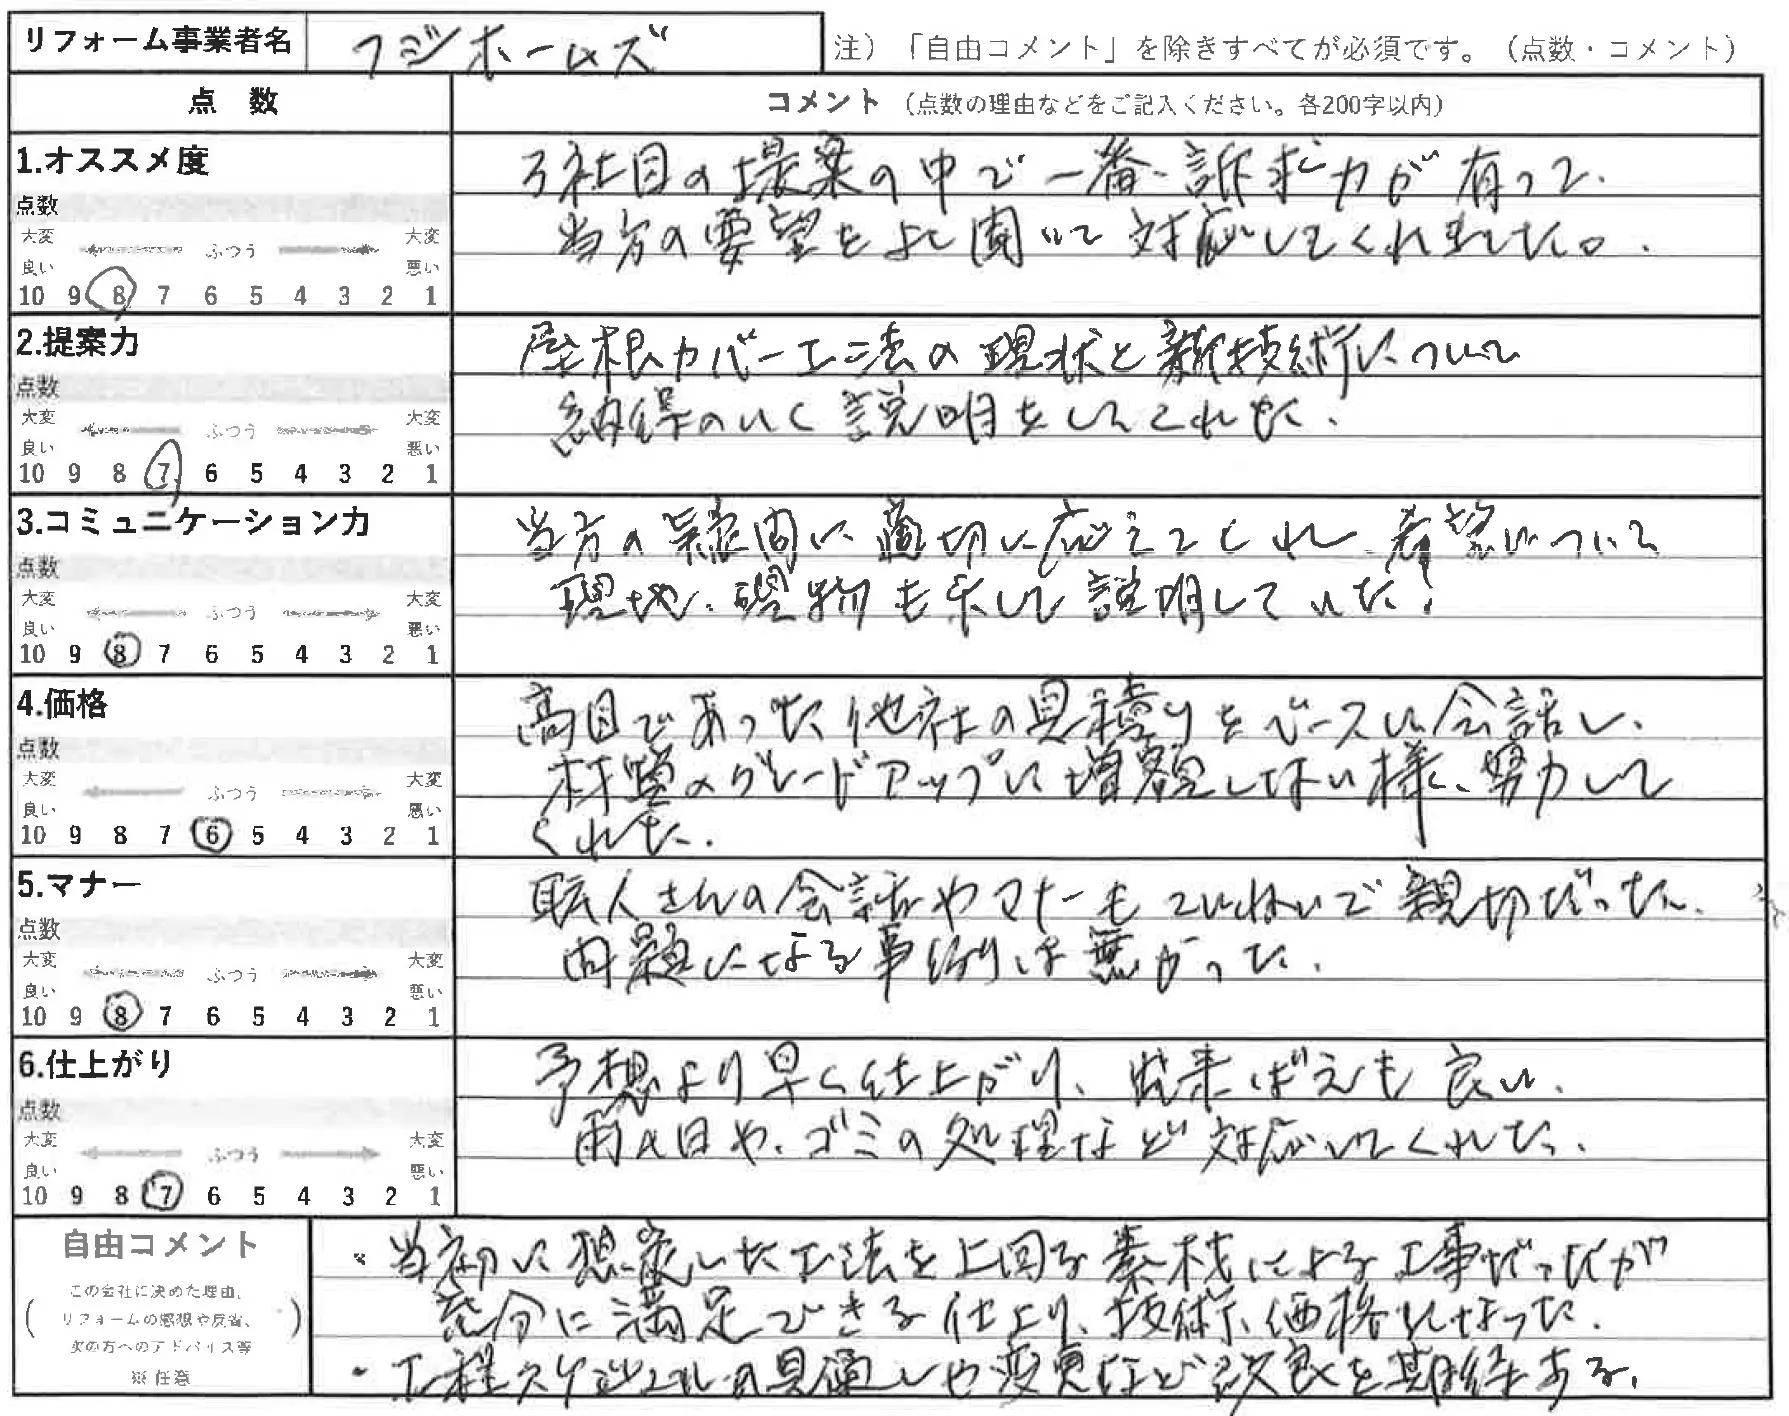 リフォーム事業者名 フジホームズ
注）「自由コメント」を除きすべてが必須です。（点数・コメント）
点 数
コメント（点数の理由などをご記入ください。各200字以内）
1.オススメ度
点数
大変 ふつう 大変
良い 悪い
10 9 8 7 6 5 4 3 2 1
3社目の提案の中で一番訴求力が有って、
当方の要望をよく聞いて対応してくれました。
2.提案力
点数
大変 ふつう 大変
良い 悪い
10 9 8 7 6 5 4 3 2 1
屋根カバー工法の現状と新技術について
納得のいく説明をしてくれた。
3.コミュニケーション力
点数
大変 ふつう 大変
良い 悪い
10 9 8 7 6 5 4 3 2 1
当方の疑問に適切に応えてくれ、希望について
現地、現物も示して説明していた。
4.価格
点数
大変 ふつう 大変
良い 悪い
10 9 8 7 6 5 4 3 2 1
高目であった他社の見積りをベースに会話し、
材質のグレードアップに増額しない様、努力して
くれた。
5.マナー
点数
大変 ふつう 大変
良い 悪い
10 9 8 7 6 5 4 3 2 1
職人さんの会話やマナーもていねいで親切だった。
問題になる事例は無かった。
6.仕上がり
点数
大変 ふつう 大変
良い 悪い
10 9 8 7 6 5 4 3 2 1
予想より早く仕上がり、出来ばえも良い。
雨の日や、ゴミの処理など対応してくれた。
自由コメント
（この会社に決めた理由、
リフォームの感想や反省、
次の方へのアドバイス等）
※任意
・当初に想定した工法を上回る素材による工事だったが
充分に満足できる仕上り、技術、価格となった。
・工程スケジュールの見通しや変更など改良を期待する。